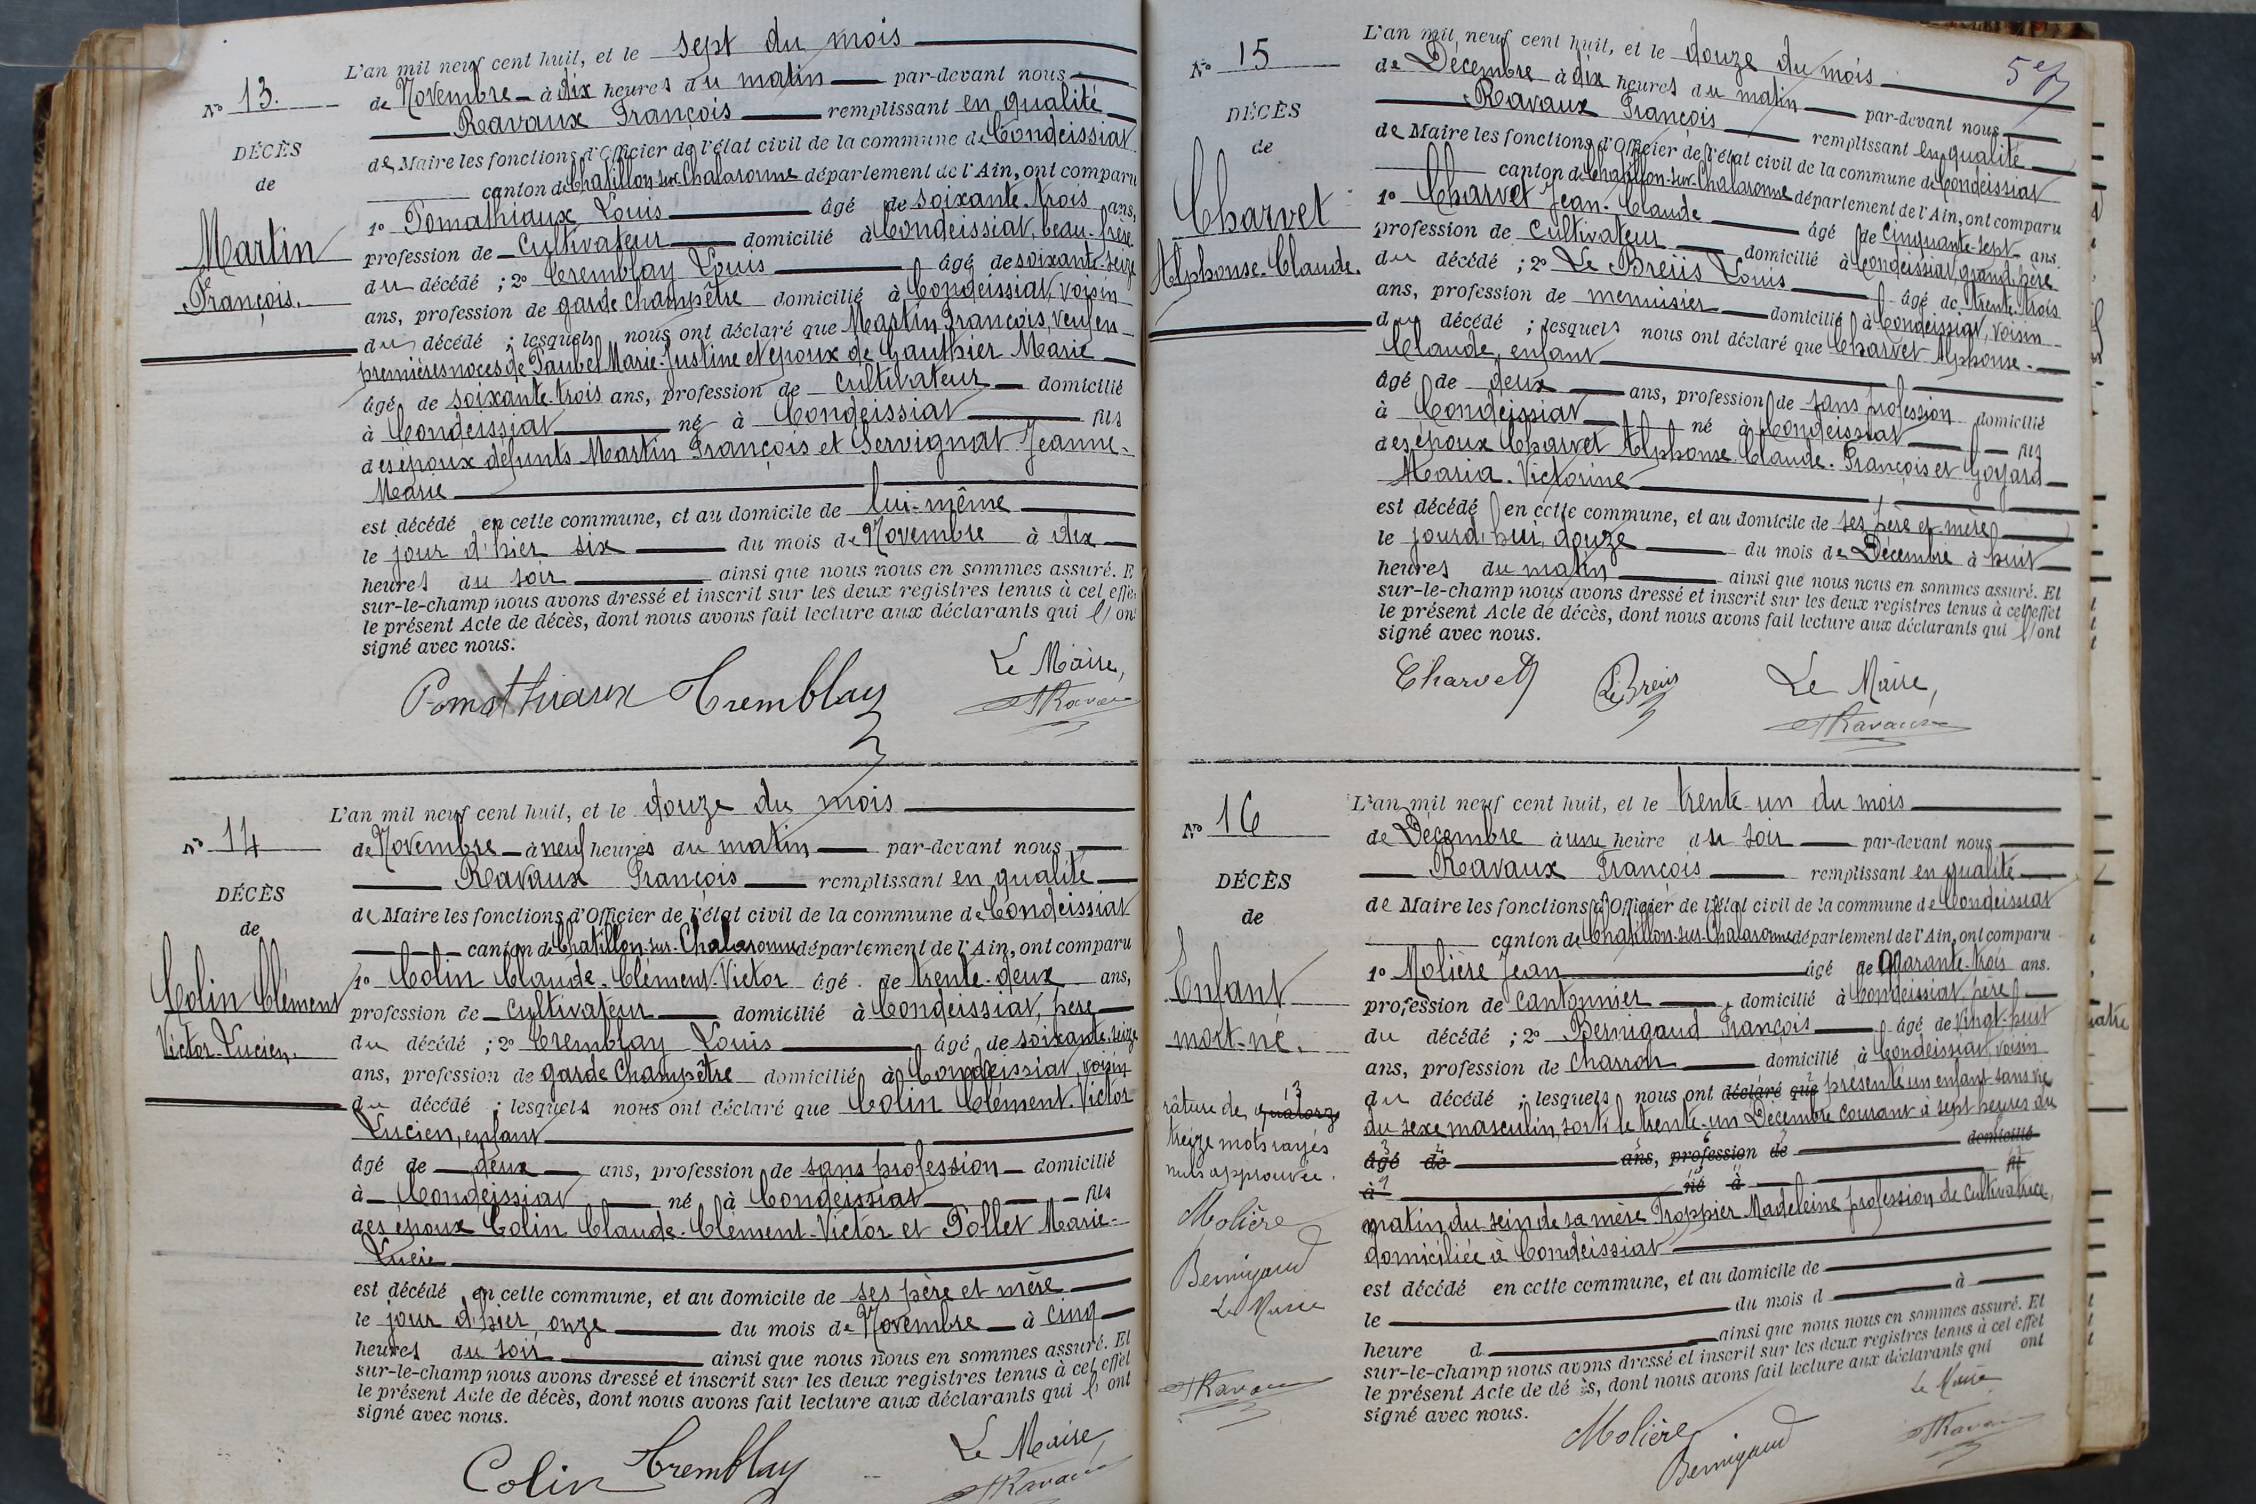 N° 13.
DÉCÈS
de
Martin
François.
L'an mil neuf cent huit, et le sept du mois
de Novembre à dix heures du matin par-devant nous
Ravaux François remplissant en qualité
de Maire les fonctions d'Officier de l'état civil de la commune de Condeissiat
canton de Chatillon-sur-Chalaronne département de l'Ain, ont comparu
1° Pomathiaux Louis âgé de soixante-trois ans,
profession de Cultivateur domicilié à Condeissiat, beau-frère
du décédé ; 2° Tremblay Louis âgé de soixante-seize
ans, profession de garde champêtre domicilié à Condeissiat, voisin
du décédé ; lesquels nous ont déclaré que Martin François, veuf en
premières noces de Paubel Marie-Justine et époux de Gauthier Marie
âgé de soixante-trois ans, profession de Cultivateur domicilié
à Condeissiat né à Condeissiat fils
des époux défunts Martin François et Servignat Jeanne-
Marie
est décédé en cette commune, et au domicile de lui-même
le jour d'hier six du mois de Novembre à dix
heures du soir ainsi que nous nous en sommes assuré. E
sur-le-champ nous avons dressé et inscrit sur les deux registres tenus à cet effe
le présent Acte de décès, dont nous avons fait lecture aux déclarants qui l'ont
signé avec nous.
Pomathiaux Tremblay Le Maire,
Ravaux
N° 14
DÉCÈS
de
Colin Clément
Victor-Lucien.
L'an mil neuf cent huit, et le douze du mois
de Novembre à neuf heures du matin par-devant nous
Ravaux François remplissant en qualité
de Maire les fonctions d'Officier de l'état civil de la commune de Condeissiat
canton de Chatillon-sur-Chalaronne département de l'Ain, ont comparu
1° Colin Claude-Clément-Victor âgé de trente-deux ans,
profession de Cultivateur domicilié à Condeissiat, père
du décédé ; 2° Tremblay Louis âgé de soixante-seize
ans, profession de garde champêtre domicilié à Condeissiat, voisin
du décédé ; lesquels nous ont déclaré que Colin Clément-Victor
Lucien, enfant
âgé de deux ans, profession de sans profession domicilié
à Condeissiat né à Condeissiat fils
des époux Colin Claude-Clément-Victor et Pollet Marie-
Lucie
est décédé en cette commune, et au domicile de ses père et mère
le jour d'hier, onze du mois de Novembre à cinq
heures du soir ainsi que nous nous en sommes assuré. Et
sur-le-champ nous avons dressé et inscrit sur les deux registres tenus à cet effet
le présent Acte de décès, dont nous avons fait lecture aux déclarants qui l'ont
signé avec nous.
Colin Tremblay Le Maire,
Ravaux
N° 15
DÉCÈS
de
Charvet
Alphonse-Claude.
L'an mil neuf cent huit, et le douze du mois
de Décembre à dix heures du matin par-devant nous
Ravaux François remplissant en qualité
de Maire les fonctions d'Officier de l'état civil de la commune de Condeissiat
canton de Chatillon-sur-Chalaronne département de l'Ain, ont comparu
1° Charvet Jean-Claude âgé de cinquante-sept ans.
profession de Cultivateur domicilié à Condeissiat, grand père
du décédé ; 2° Le Breüs Louis âgé de trente-trois
ans, profession de menuisier domicilié à Condeissiat, voisin
du décédé ; lesquels nous ont déclaré que Charvet Alphonse-
Claude, enfant
âgé de deux ans, profession de sans profession domicilié
à Condeissiat né à Condeissiat fils
des époux Charvet Alphonse-Claude-François et Goyard
Maria-Victorine
est décédé en cette commune, et au domicile de ses père et mère
le jourd'hui, douze du mois de Décembre à huit
heures du matin ainsi que nous nous en sommes assuré. Et
sur-le-champ nous avons dressé et inscrit sur les deux registres tenus à cet effet
le présent Acte de décès, dont nous avons fait lecture aux déclarants qui l'ont
signé avec nous.
Charvet Le Breüs Le Maire,
Ravaux
N° 16
DÉCÈS
de
Enfant
mort-né.
13
râture de quatorze
treize mots rayés
nuls approuvée.
Molière
Bernigaud
Le Maire
Ravaux
L'an mil neuf cent huit, et le trente-un du mois
de Décembre à une heure du soir par-devant nous
Ravaux François remplissant en qualité
de Maire les fonctions d'Officier de l'état civil de la commune de Condeissiat
canton de Chatillon-sur-Chalaronne département de l'Ain, ont comparu
1° Molière Jean âgé de quarante-trois ans.
profession de cantonnier domicilié à Condeissiat, père
du décédé ; 2° Bernigaud François âgé de vingt-huit
ans, profession de charron domicilié à Condeissiat, voisin
du décédé ; lesquels nous ont déclaré que présenté un enfant sans vie
du sexe masculin, sorti le trente-un Décembre courant à sept heures du
âgé de ans, profession de domicilié
à né à fil
matin, du sein de sa mère Troppier Madeleine profession de cultivatrice,
domiciliée à Condeissiat
est décédé en cette commune, et au domicile de
le du mois d à
heure d ainsi que nous nous en sommes assuré. Et
sur-le-champ nous avons dressé et inscrit sur les deux registres tenus à cet effet
le présent Acte de décès, dont nous avons fait lecture aux déclarants qui ont
signé avec nous.
Le Maire
Molière Bernigaud Ravaux